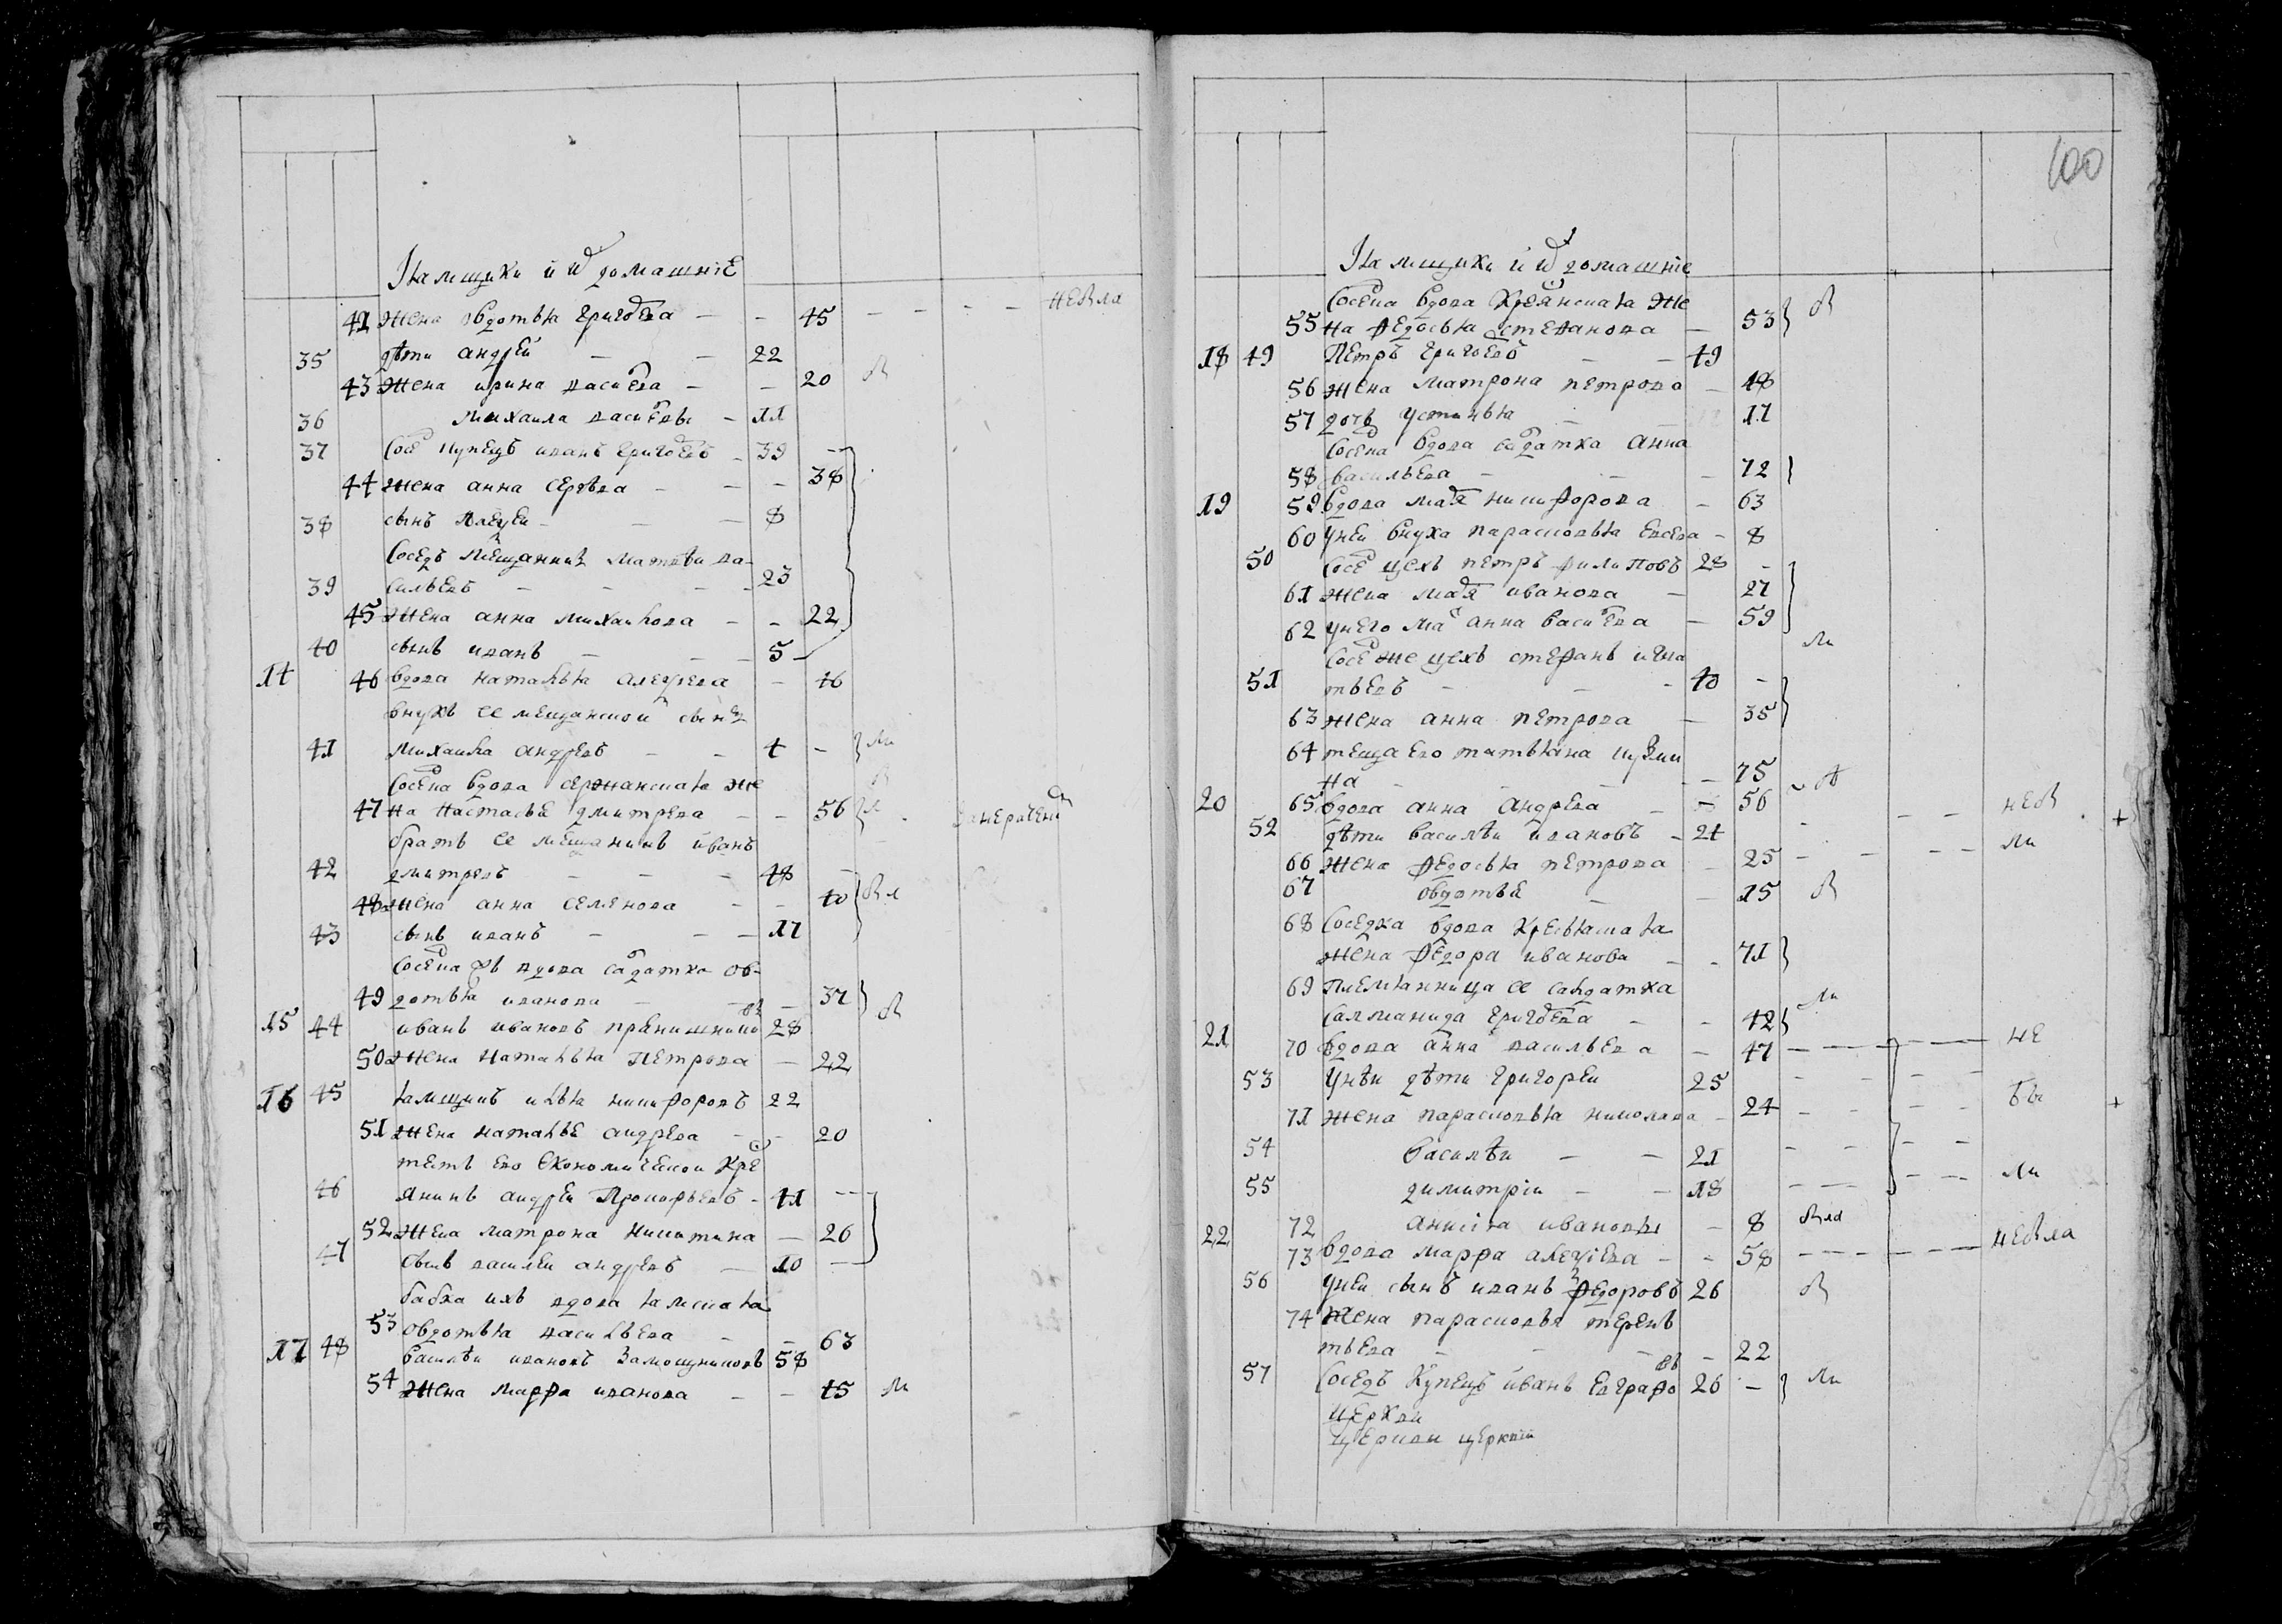 Ямщики и ихъ домашніе
42 жена овдотья григорева — — 45 — — — — небыла
35 дѣти андрей — — 22
43 жена ирина василева — — 20
36 михаила василевы — 11
37 сосед купецъ иванъ григоревъ — 39
44 жена анна сергѣва — — — 38
38 сынъ алеѯей — — — 8
соседъ мещанинъ матвѣи ва-
39 сильевъ — — — 23
45 жена анна михаилова — — 22
40 сынъ иванъ — — — 5
14 46 вдова наталья алеѯеева — 46
внукъ ее мещанской сынъ
41 михаила андревъ — — 4 —
соседка вдова сержанская же
47 на настасья дмитрева — — 56
братъ ее мещанинъ иванъ
42 дмитревъ — — — 48
48 жена анна семенова — — 40
43 сынъ иванъ — — — 17
соседка вдова салдатка ов-
49 дотья иванова — — — 37
15 44 иванъ ивановъ пренишниковъ 28
50 жена наталья петрова — 22
16 45 ямщикъ илья никифоровъ 22
51 жена наталье андрева — — 20
тесть ево економическои кре
46 янинъ андреи прокофьевъ — 41 — —
52 жена матрона никитина — 26
47 сынъ василеи андревъ — 10 —
бабка ихъ вдова ямская
53 овдотья васильева — — 63
17 48 василѣи ивановъ замощниковъ 58
54 жена марфа иванова — — 45
100
Ямщики и ихъ домашніе
соседка вдова крестьянская же
55 на федосья стефанова — 53
18 49 петръ григоревъ — — 49
56 жена матрона петрова — 48
57 дочь устинья — — 17
соседка вдова салдатка анна
58 васильева — — — 72
19 59 вдова марья никифорова — 63
60 унеи внука парасковья евсева — 8
50 сосед цехъ петръ филиповъ 28 —
61 жена марья иванова — 27
62 унего мать анна василева — 59
сосед же цехъ стефанъ игна
51 тьевъ — — — 40 —
63 жена анна петрова — 35
64 теща ево татьяна кузми
на — — — 75
20 65 вдова анна андрева — — 56 — — неб
52 дѣти василѣи ивановъ — 24 — ли
66 жена федосья петрова — 25 — — — —
67 овдотья — — 15
68 соседка вдова крестьянская
жена федора иванова — — 71
69 племянница ее салдатка
салманида григорева — — 42
21 70 вдова анна васильева — 47 — — — — не
53 унѣи дѣти григореи 25 — — — —
71 жена парасковья николаева — 24 — — — — бы
54 василѣи — — 21 — — — —
55 димитріи — — 18 — — — — ли
72 анисія ивановы — 8 была
22 73 вдова марфа алеѯіева — — 58 — — — — небыла
56 унеи сынъ иванъ федоровъ 26
74 жена парасковья терень
тьева — — — 22
57 соседъ купецъ иванъ евграфовъ 26 —
церкви
церкви церквіи